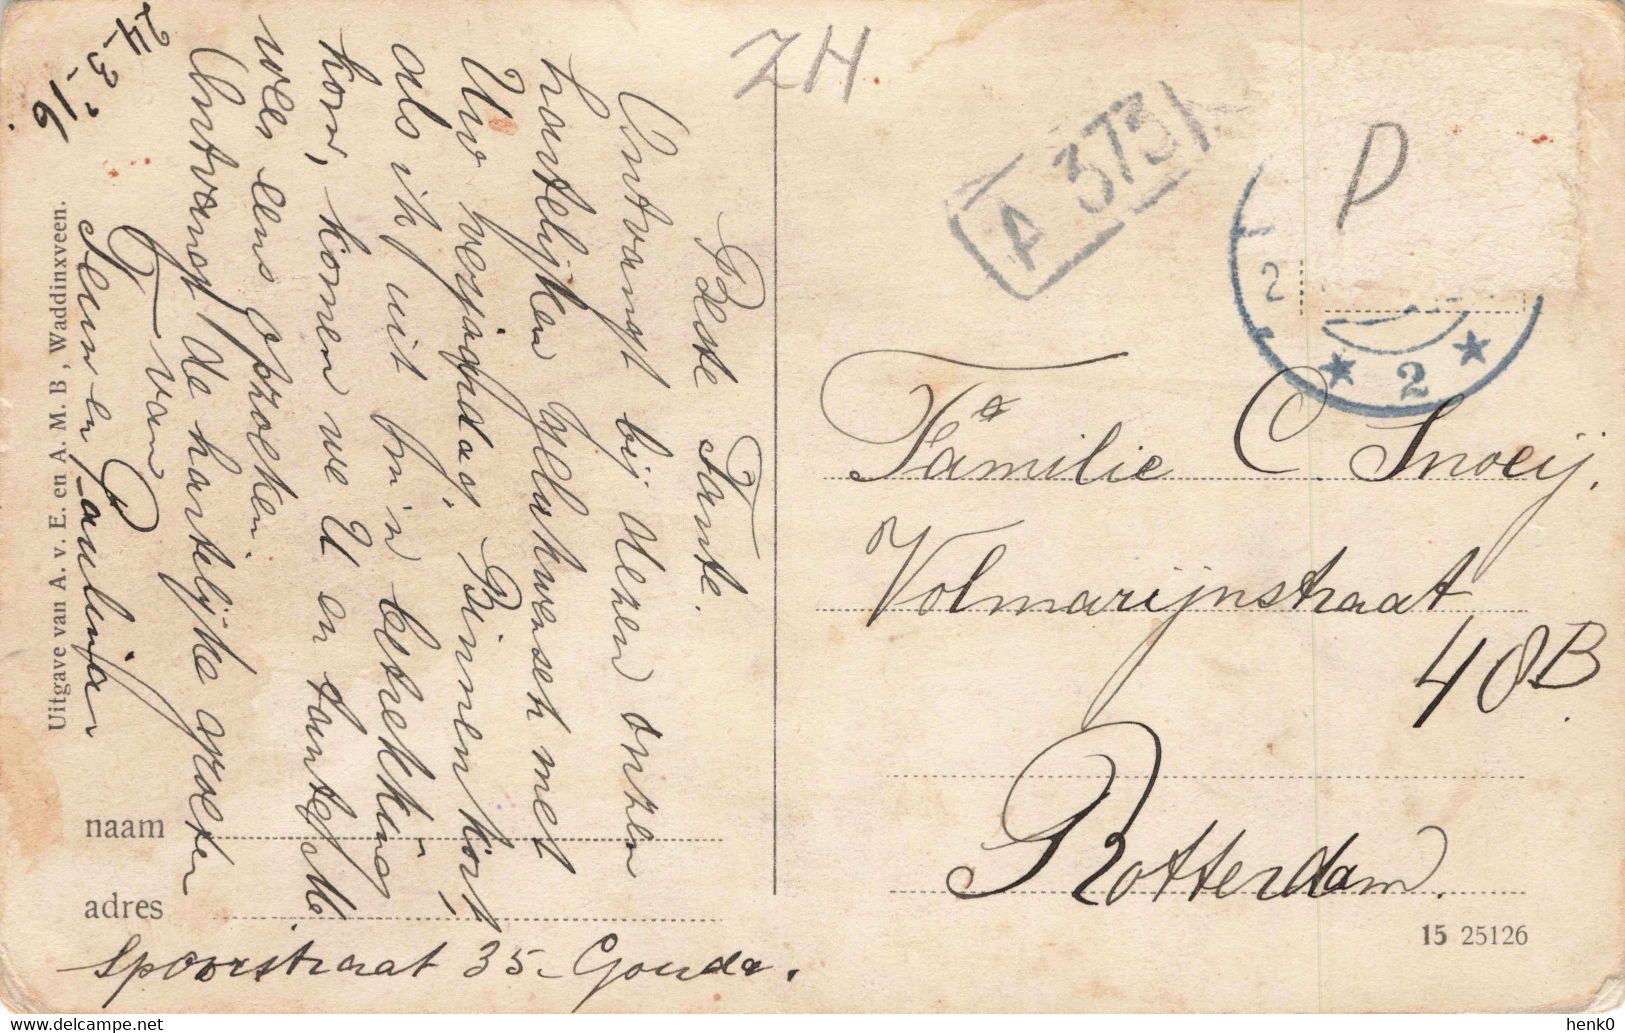 ZH
A 373
D
2
2
Familie C. Snoeij.
Volmarijnstraat
40B
Rotterdam.
15 25126
24-3-'16
Beste Tante.
Ontvangt bij dezen onzen
hartelijken gelukwensch met
Uw verjaardag. Binnenkort,
als ik uit m'n betrekking
kom, komen we U en tante M
wees eens opzoeken.
Ontvangt de hartelijke groeten
van
Teun en Paulina
Uitgave van A. v. E. en A. M. B, Waddinxveen.
naam
adres
Spoorstraat 35 - Gouda.
henk0